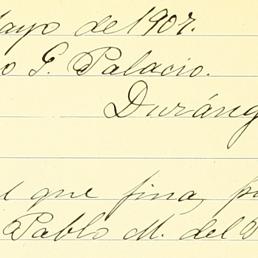 Mayo de 1907.
o G. Palacio.
Durang
que fina, p
Pablo M. del